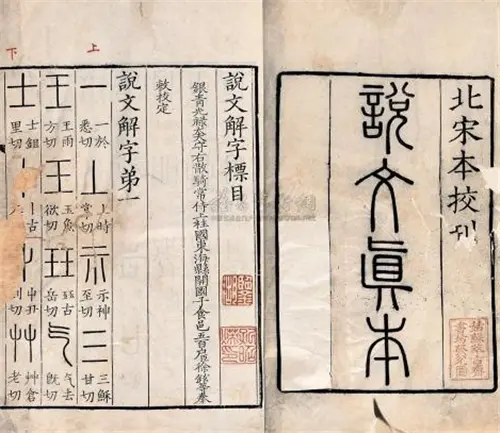 北宋本挍刊
說文眞本
說文解字標目
銀青光祿大夫守右散騎常侍上柱國東海縣開國子食邑五百戶臣徐鉉等奉
敕挍定
說文解字弟一
上
一 一於悉切 丄 上時掌切 示 示神至切 三 三穌甘切
王 王雨方切 王 玉魚欲切 玨 玨古岳切 气 气去旣切
下
士 士鉏里切 丨 丨古 屮 屮丑列切 艸 艸倉老切